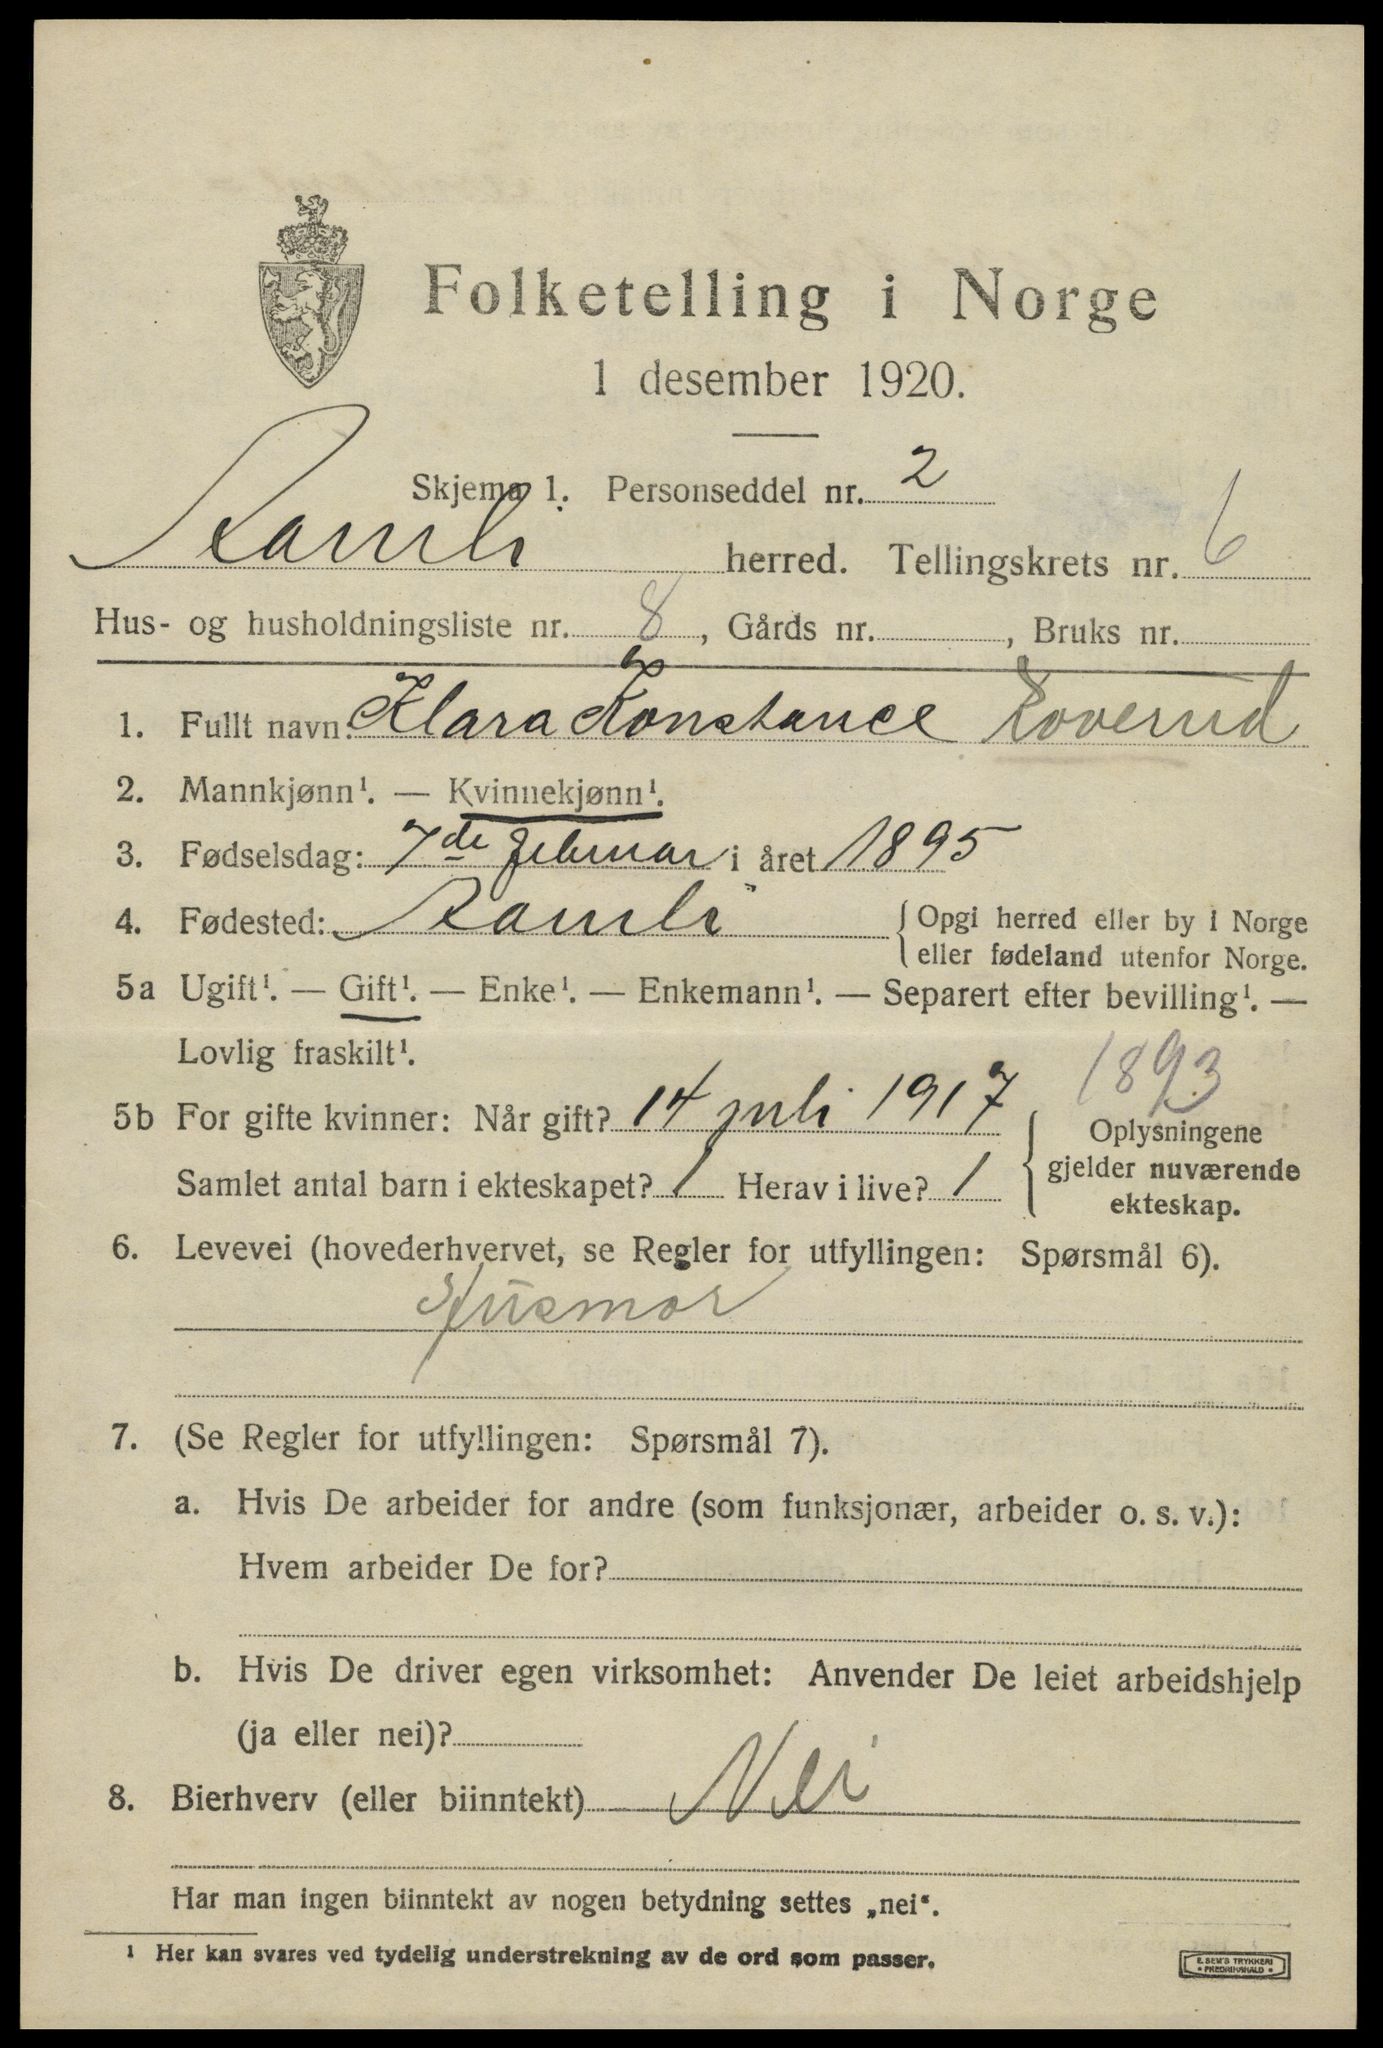 Folketelling i Norge
1 desember 1920.
Skjema 1. Personseddel nr. 2
Ramli herred. Tellingskrets nr. 6
Hus- og husholdningsliste nr. 8, Gårds nr. , Bruks nr.
1. Fullt navn: Klara Konstance Roverud
2. Mannkjønn¹. — Kvinnekjønn¹.
3. Fødselsdag: 7de februar i året 1895
4. Fødested: Ramli { Opgi herred eller by i Norge
eller fødeland utenfor Norge.
5a Ugift¹. — Gift¹. — Enke¹. — Enkemann¹. — Separert efter bevilling¹. —
Lovlig fraskilt¹.
1893
5b For gifte kvinner: Når gift? 14 juli 1917
Samlet antal barn i ekteskapet? 1 Herav i live? 1
Oplysningene
gjelder nuværende
ekteskap.
6. Levevei (hovederhvervet, se Regler for utfyllingen: Spørsmål 6).
Husmor
7. (Se Regler for utfyllingen: Spørsmål 7).
a. Hvis De arbeider for andre (som funksjonær, arbeider o. s. v.):
Hvem arbeider De for?
b. Hvis De driver egen virksomhet: Anvender De leiet arbeidshjelp
(ja eller nei)?
8. Bierhverv (eller biinntekt) Nei
Har man ingen biinntekt av nogen betydning settes „nei“.
¹ Her kan svares ved tydelig understrekning av de ord som passer.
E. SEM'S TRYKKERI
• FREDRIKSHALD •